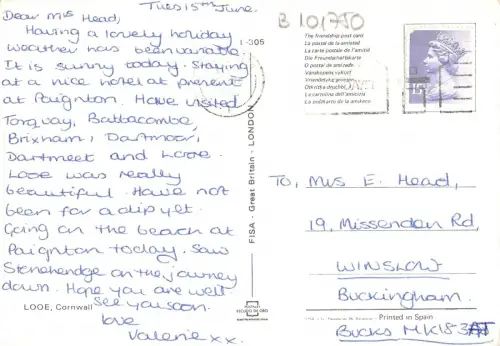 Tues 15th June.
Dear Mrs Head,
Having a lovely holiday
weather has been variable.
It is sunny today. Staying
at a nice hotel at present
at Paignton. Have visited
Torquay, Battacombe,
Brixham, Dartmoor,
Dartmeet and Looe.
Looe was really
beautiful. Have not
been for a dip yet.
Going on the beach at
Paignton today. Saw
Stonehendge on the journey
down. Hope you are well.
See you soon.
love
Valerie xx.
LOOE, Cornwall
1-305
FISA - Great Britain - LONDON
ESCUDO DE ORO
B 101,750
The friendship post card
La postal de la amistad
La carte postale de l'amitié
Die Freundschaftskarte
O postal da amizade
Vänskapens vykort
La cartolina dell'amicizia
15
To, Mrs E. Head,
19, Missenden Rd,
WINSLOW
Buckingham.
Printed in Spain
Bucks MK18 3AT